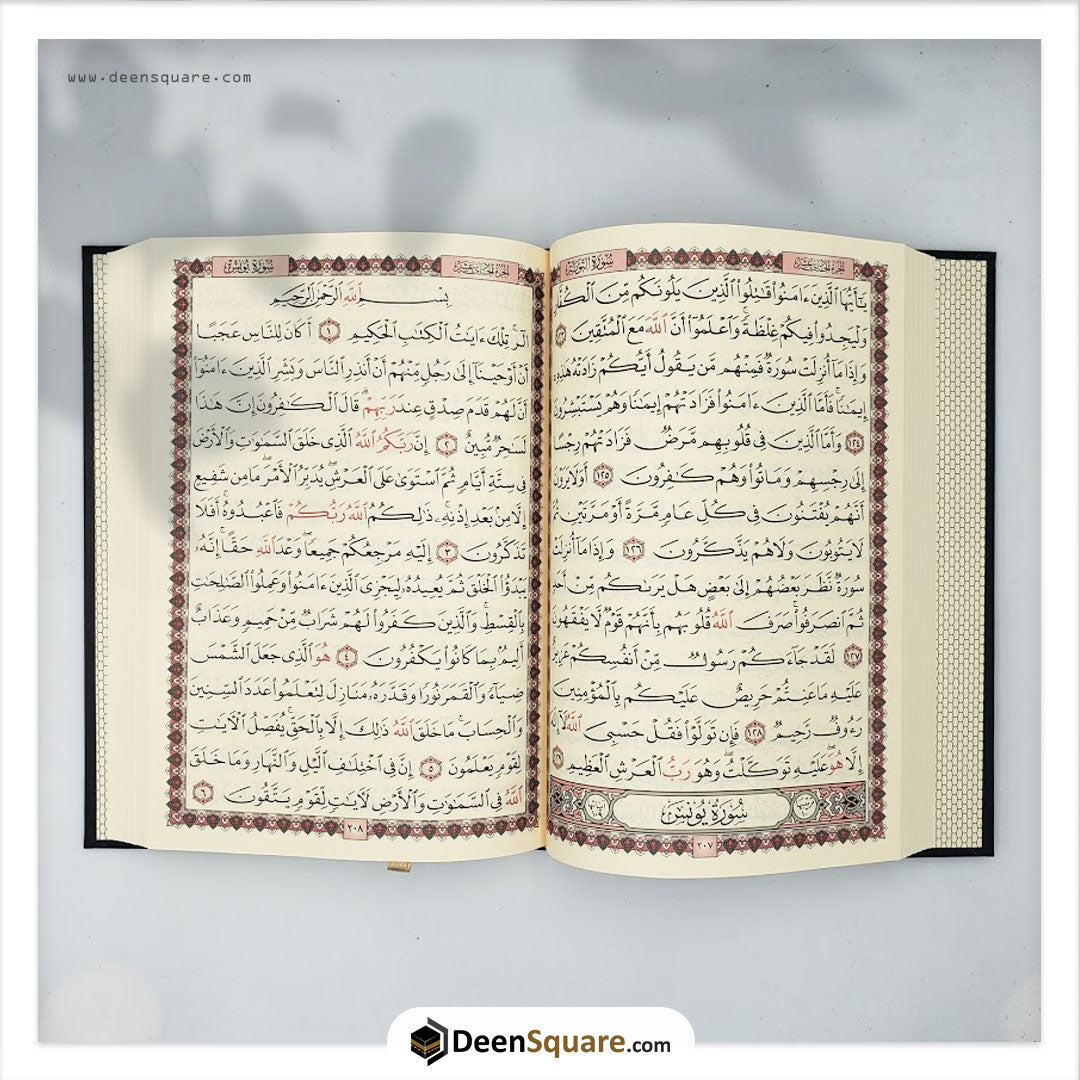 www.deensquare.com
الجزء الحادي عشر
سُورَةُ التَّوْبَةِ
يَٰٓأَيُّهَا ٱلَّذِينَ ءَامَنُوا۟ قَٰتِلُوا۟ ٱلَّذِينَ يَلُونَكُم مِّنَ
وَلْيَجِدُوا۟ فِيكُمْ غِلْظَةً ۚ وَٱعْلَمُوٓا۟ أَنَّ ٱللَّهَ مَعَ ٱلْمُتَّقِينَ ١٢٣
وَإِذَا مَآ أُنزِلَتْ سُورَةٌ فَمِنْهُم مَّن يَقُولُ أَيُّكُمْ زَادَتْهُ هَٰذِهِۦٓ
إِيمَٰنًا ۚ فَأَمَّا ٱلَّذِينَ ءَامَنُوا۟ فَزَادَتْهُمْ إِيمَٰنًا وَهُمْ يَسْتَبْشِرُونَ
١٢٤ وَأَمَّا ٱلَّذِينَ فِى قُلُوبِهِم مَّرَضٌ فَزَادَتْهُمْ رِجْسًا
إِلَىٰ رِجْسِهِمْ وَمَاتُوا۟ وَهُمْ كَٰفِرُونَ ١٢٥ أَوَلَا يَرَوْنَ
أَنَّهُمْ يُفْتَنُونَ فِى كُلِّ عَامٍ مَّرَّةً أَوْ مَرَّتَيْنِ ثُمَّ
لَا يَتُوبُونَ وَلَا هُمْ يَذَّكَّرُونَ ١٢٦ وَإِذَا مَآ أُنزِلَتْ
سُورَةٌ نَّظَرَ بَعْضُهُمْ إِلَىٰ بَعْضٍ هَلْ يَرَىٰكُم مِّنْ أَحَدٍ
ثُمَّ ٱنصَرَفُوا۟ ۚ صَرَفَ ٱللَّهُ قُلُوبَهُم بِأَنَّهُمْ قَوْمٌ لَّا يَفْقَهُونَ
١٢٧ لَقَدْ جَآءَكُمْ رَسُولٌ مِّنْ أَنفُسِكُمْ عَزِيزٌ
عَلَيْهِ مَا عَنِتُّمْ حَرِيصٌ عَلَيْكُم بِٱلْمُؤْمِنِينَ
رَءُوفٌ رَّحِيمٌ ١٢٨ فَإِن تَوَلَّوْا۟ فَقُلْ حَسْبِىَ ٱللَّهُ لَآ إِلَٰهَ
إِلَّا هُوَ ۖ عَلَيْهِ تَوَكَّلْتُ ۖ وَهُوَ رَبُّ ٱلْعَرْشِ ٱلْعَظِيمِ
سُورَةُ يُونُسَ
٢٠٧
الجزء الحادي عشر
سُورَةُ يُونُسَ
بِسْمِ ٱللَّهِ ٱلرَّحْمَٰنِ ٱلرَّحِيمِ
الٓر ۚ تِلْكَ ءَايَٰتُ ٱلْكِتَٰبِ ٱلْحَكِيمِ ١ أَكَانَ لِلنَّاسِ عَجَبًا
أَنْ أَوْحَيْنَآ إِلَىٰ رَجُلٍ مِّنْهُمْ أَنْ أَنذِرِ ٱلنَّاسَ وَبَشِّرِ ٱلَّذِينَ ءَامَنُوٓا۟
أَنَّ لَهُمْ قَدَمَ صِدْقٍ عِندَ رَبِّهِمْ ۗ قَالَ ٱلْكَٰفِرُونَ إِنَّ هَٰذَا
لَسَٰحِرٌ مُّبِينٌ ٢ إِنَّ رَبَّكُمُ ٱللَّهُ ٱلَّذِى خَلَقَ ٱلسَّمَٰوَٰتِ وَٱلْأَرْضَ
فِى سِتَّةِ أَيَّامٍ ثُمَّ ٱسْتَوَىٰ عَلَى ٱلْعَرْشِ ۖ يُدَبِّرُ ٱلْأَمْرَ ۖ مَا مِن شَفِيعٍ
إِلَّا مِنۢ بَعْدِ إِذْنِهِۦ ۚ ذَٰلِكُمُ ٱللَّهُ رَبُّكُمْ فَٱعْبُدُوهُ ۚ أَفَلَا
تَذَكَّرُونَ ٣ إِلَيْهِ مَرْجِعُكُمْ جَمِيعًا ۖ وَعْدَ ٱللَّهِ حَقًّا ۚ إِنَّهُۥ
يَبْدَؤُا۟ ٱلْخَلْقَ ثُمَّ يُعِيدُهُۥ لِيَجْزِىَ ٱلَّذِينَ ءَامَنُوا۟ وَعَمِلُوا۟ ٱلصَّٰلِحَٰتِ
بِٱلْقِسْطِ ۚ وَٱلَّذِينَ كَفَرُوا۟ لَهُمْ شَرَابٌ مِّنْ حَمِيمٍ وَعَذَابٌ
أَلِيمٌۢ بِمَا كَانُوا۟ يَكْفُرُونَ ٤ هُوَ ٱلَّذِى جَعَلَ ٱلشَّمْسَ
ضِيَآءً وَٱلْقَمَرَ نُورًا وَقَدَّرَهُۥ مَنَازِلَ لِتَعْلَمُوا۟ عَدَدَ ٱلسِّنِينَ
وَٱلْحِسَابَ ۚ مَا خَلَقَ ٱللَّهُ ذَٰلِكَ إِلَّا بِٱلْحَقِّ ۚ يُفَصِّلُ ٱلْءَايَٰتِ
لِقَوْمٍ يَعْلَمُونَ ٥ إِنَّ فِى ٱخْتِلَٰفِ ٱلَّيْلِ وَٱلنَّهَارِ وَمَا خَلَقَ
ٱللَّهُ فِى ٱلسَّمَٰوَٰتِ وَٱلْأَرْضِ لَءَايَٰتٍ لِّقَوْمٍ يَتَّقُونَ ٦
٢٠٨
DeenSquare.com